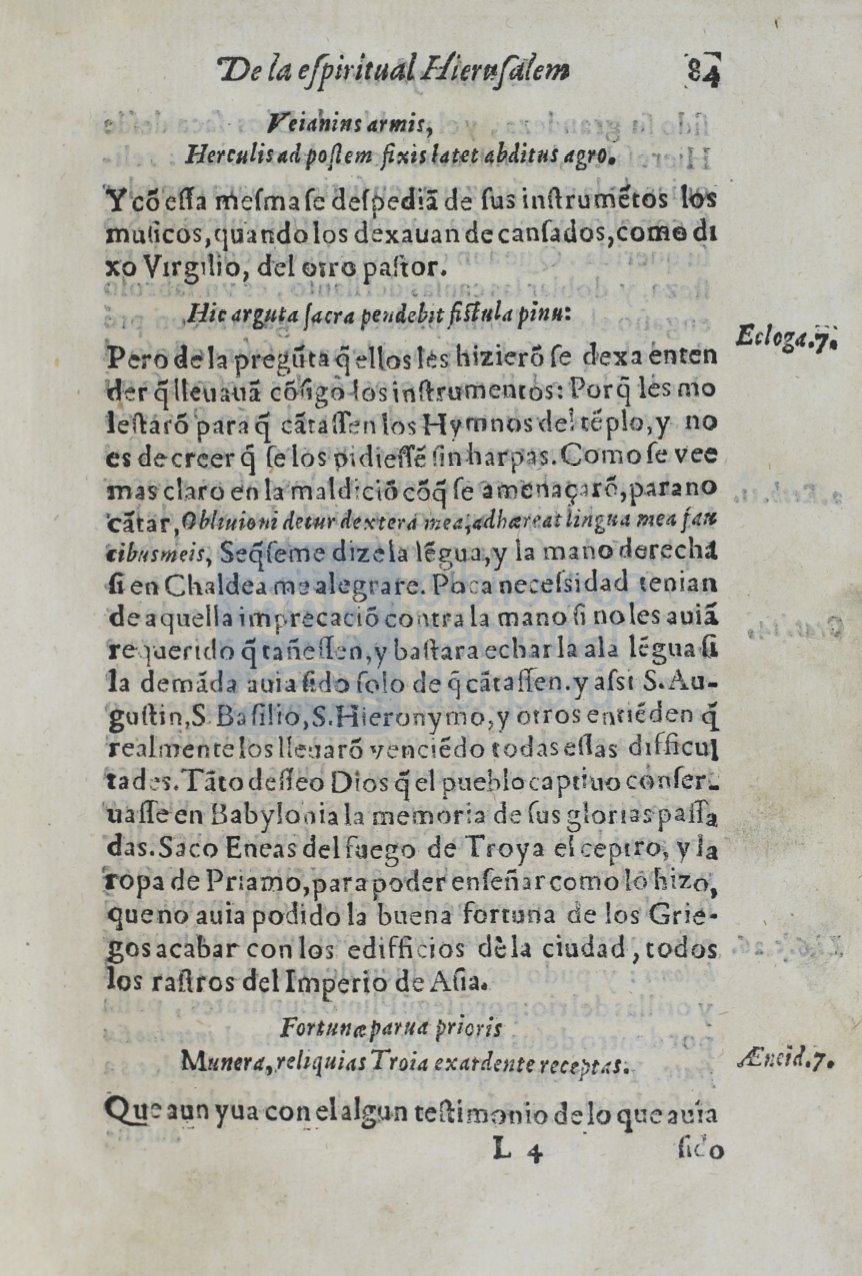 De la eſpiritual Hieruſalem 84
Veianins armis,
Herculis ad poſtem fixis latet abditus agro.
Y cõ eſſa meſma ſe deſpediã de ſus inſtrumẽtos los
muſicos, quando los dexauan de canſados, como di
xo Virgilio, del otro paſtor.
Hic arguta ſacra pendebit fiſtula pinu:
Ecloga.7.
Pero de la pregũta q̃ ellos les hizierõ ſe dexa enten
der q̃ lleuauã cõſigo los inſtrumentos: Porq̃ les mo
leſtarõ para q̃ cãtaſſen los Hymnos del tẽplo, y no
es de creer q̃ ſe los pidieſſẽ ſin harpas. Como ſe vee
mas claro en la maldiciõ cõq̃ ſe amenaçarõ, para no
cãtar, Obliuioni detur dextera mea, adhæreat lingua mea fau
cibus meis, Seq̃ſeme dize la lẽgua, y la mano derecha
ſi en Chaldea me alegrare. Poca neceſsidad tenian
de aquella imprecaciõ contra la mano ſi no les auiã
requerido q̃ tañeſſen, y baſtara echar la a la lẽgua ſi
la demãda auia ſido ſolo de q̃ cãtaſſen. y aſsi S. Au-
guſtin, S. Baſilio, S. Hieronymo, y otros entiẽden q̃
realmente los lleuarõ venciẽdo todas eſtas difficul
tades. Tãto deſſeo Dios q̃ el pueblo captiuo conſer-
uaſſe en Babylonia la memoria de ſus glorias paſſa
das. Saco Eneas del fuego de Troya el ceptro, y la
ropa de Priamo, para poder enſeñar como lo hizo,
que no auia podido la buena fortuna de los Grie-
gos acabar con los edifficios dela ciudad, todos
los raſtros del Imperio de Aſia.
Fortunæ parua prioris
Munera, reliquias Troia exardente receptas.
Æneid.7.
Que aun yua con el algun teſtimonio de lo que auia
L 4 ſido